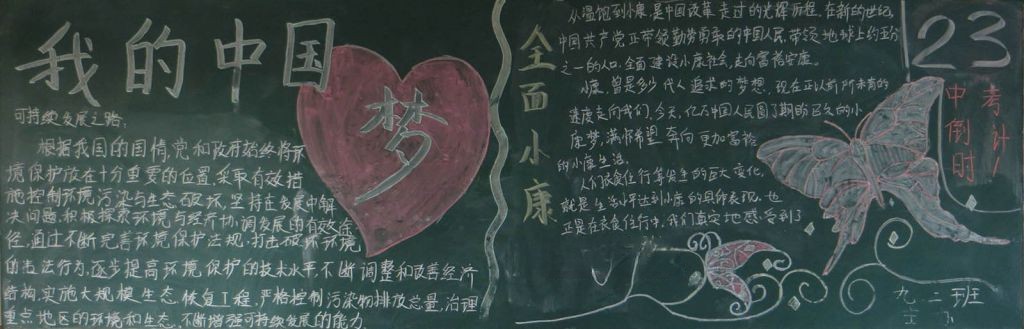 我的中国
梦
可持续发展之路:
根据我国的国情,党和政府始终将环
境保护放在十分重要的位置,采取有效措
施控制环境污染与生态破坏,坚持在发展中解
决问题,积极探索环境与经济协调发展的有效途
径,通过不断完善环境保护法规,打击破坏环境
的违法行为,逐步提高环境保护的技术水平,不断调整和改善经济
结构,实施大规模生态恢复工程,严格控制污染物排放总量,治理
重点地区的环境和生态,不断增强可持续发展的能力
全面小康
从温饱到小康是中国改革走过的光辉历程,在新的世纪,
中国共产党正带领勤劳勇敢的中国人民,带领地球上约五分
之一的人口,全面建设小康社会,走向富裕安康。
小康,曾是多少代人追求的梦想,现在正以前所未有的
速度走向我们,今天,亿万中国人民圆了期盼已久的小
康梦,满怀希望,奔向更加富裕
的小康生活。
人们衣食住行等发生的巨大变化,
就是生活水平达到小康的具体表现,也
正是在衣食住行中,我们真实地感受到了
23
中考倒计时!
九 二班